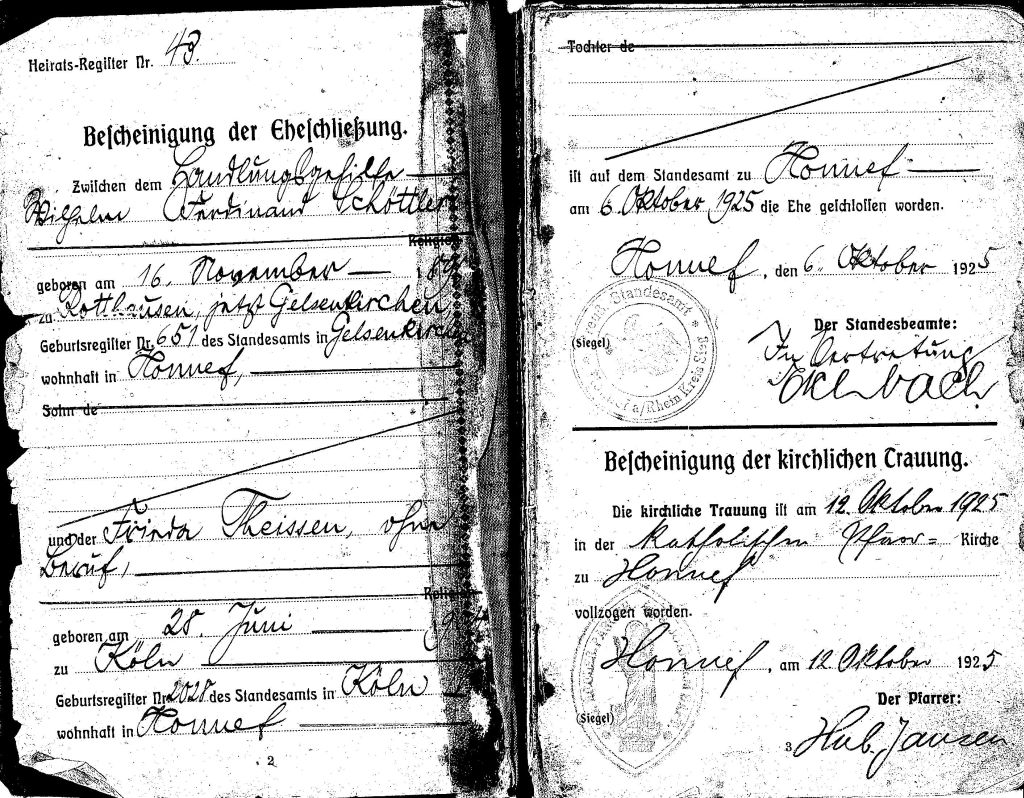 Heirats-Register Nr. 43.
Bescheinigung der Eheschließung.
Zwischen dem Handlungsgehilfe
Wilhelm Ferdinand Schöttler
Religion
geboren am 16. November 189
zu Rotthausen, jetzt Gelsenkirchen
Geburtsregister Nr. 651 des Standesamts in Gelsenkirchen
wohnhaft in Honnef,
Sohn de
und der Frieda Theissen, ohne
Beruf,
Religion
geboren am 28. Juni 190
zu Köln
Geburtsregister Nr. 2028 des Standesamts in Köln
wohnhaft in Honnef
2
Tochter de
ist auf dem Standesamt zu Honnef
am 6. Oktober 1925 die Ehe geschlossen worden.
Honnef, den 6. Oktober 1925
Standesamt
(Siegel)
a/Rhein Kreis Sieg
Der Standesbeamte:
In Vertretung
Bescheinigung der kirchlichen Trauung.
Die kirchliche Trauung ist am 12. Oktober 1925
in der katholischen Pfarr= Kirche
zu Honnef
vollzogen worden.
Honnef, am 12. Oktober 1925
(Siegel)
Der Pfarrer:
Hub. Jansen
3